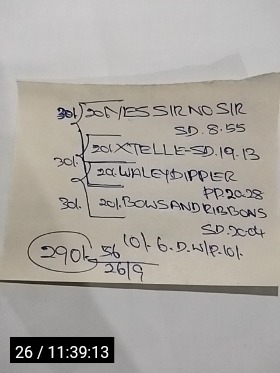 30/. 20/. YES SIR NO SIR
SD. 8.55
20/. XTELLE-SD. 19.13
30/. 20/. WALEYDIPPIER
PP. 20.28
30/. 20/. BOWSANDRIBBONS
SD. 20.04
290/. 56 10/. 6.D.W/P.10/.
26/9
26 / 11:39:13